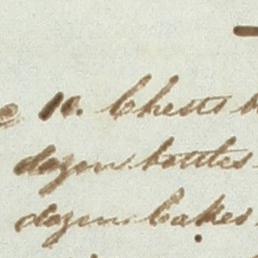 10. Chests
dozen bottles
dozen Cakes